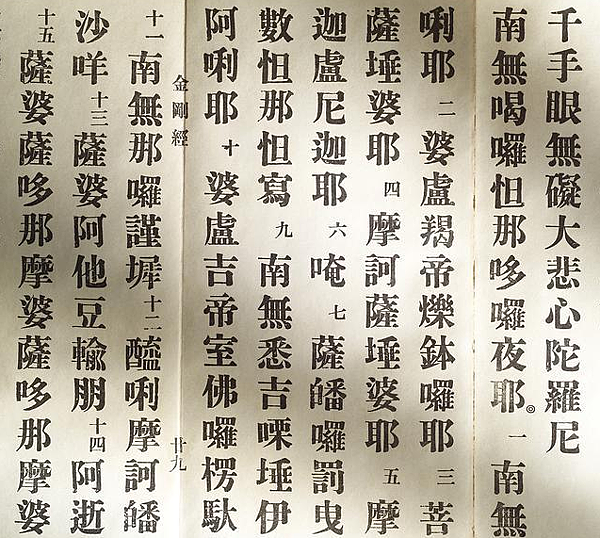 千手眼無礙大悲心陀羅尼
南無喝囉怛那哆囉夜耶。一南無阿
唎耶二婆盧羯帝爍鉢囉耶三菩
薩埵婆耶四摩訶薩埵婆耶五摩
迦盧尼迦耶六唵七薩皤囉罰曳
數怛那怛寫九南無悉吉㗚埵伊
阿唎耶十婆盧吉帝室佛囉楞馱
金剛經
廿九
十一南無那囉謹墀十二醯唎摩訶皤
沙咩十三薩婆阿他豆輸朋十四阿逝
十五薩婆薩哆那摩婆薩哆那摩婆